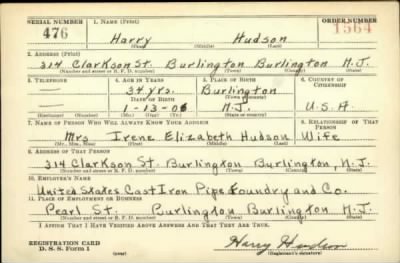 SERIAL NUMBER 1. NAME (Print) ORDER NUMBER
476 Harry Hudson 1564
(First) (Middle) (Last)
2. ADDRESS (Print)
314 Clarkson St. Burlington Burlington N.J.
(Number and street or R. F. D. number) (Town) (County) (State)
3. TELEPHONE 4. AGE IN YEARS 5. PLACE OF BIRTH 6. COUNTRY OF CITIZENSHIP
— 34 yrs. Burlington
DATE OF BIRTH (Town or county)
— 1-13-06 N.J. U.S.A.
(Exchange) (Number) (Mo.) (Day) (Yr.) (State or country)
7. NAME OF PERSON WHO WILL ALWAYS KNOW YOUR ADDRESS 8. RELATIONSHIP OF THAT PERSON
Mrs Irene Elizabeth Hudson Wife
(Mr., Mrs., Miss) (First) (Middle) (Last)
9. ADDRESS OF THAT PERSON
314 Clarkson St. Burlington Burlington, N.J.
(Number and street or R. F. D. number) (Town) (County) (State)
10. EMPLOYER'S NAME
United States Cast Iron Pipe Foundry and Co.
11. PLACE OF EMPLOYMENT OR BUSINESS
Pearl St. Burlington Burlington N.J.
(Number and street or R. F. D. number) (Town) (County) (State)
I AFFIRM THAT I HAVE VERIFIED ABOVE ANSWERS AND THAT THEY ARE TRUE.
REGISTRATION CARD
D. S. S. Form 1 (over) Harry Hudson
(Registrant's signature)